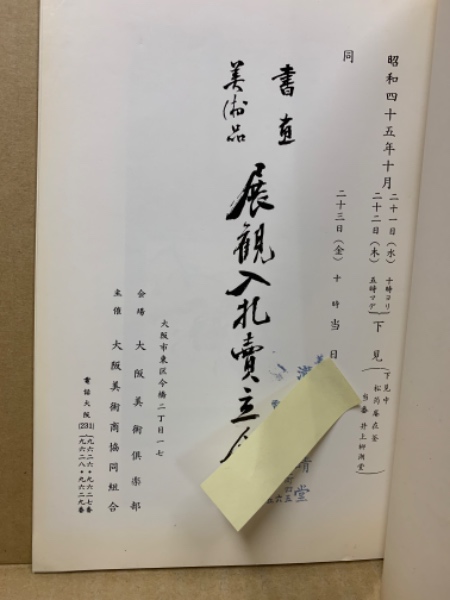 昭和四十五年十月
二十一日(水)
二十二日(木)
十時ヨリ
五時マデ
下見
下見中
松筠庵在釜
当番 井上柳湖堂
同
二十三日(金)十時
当日
書画
美術品
展観入札賣立会
堂
大阪市東区今橋二丁目一七
会場 大阪美術倶楽部
主催 大阪美術商協同組合
電話大阪(231)
九六二六・九六二七番
九六二八・九六二九番